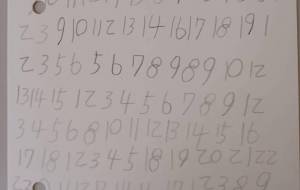 2 3 9 10 11 12 13 14 16 17 18 19 1
2 3 5 6 5 6 7 8 9 8 9 9 10 12
13 14 15 1 2 3 4 5 6 7 8 9 12
3 4 5 6 8 10 11 12 13 14 15 16
17 18 12 3 4 5 18 19 20 21 22